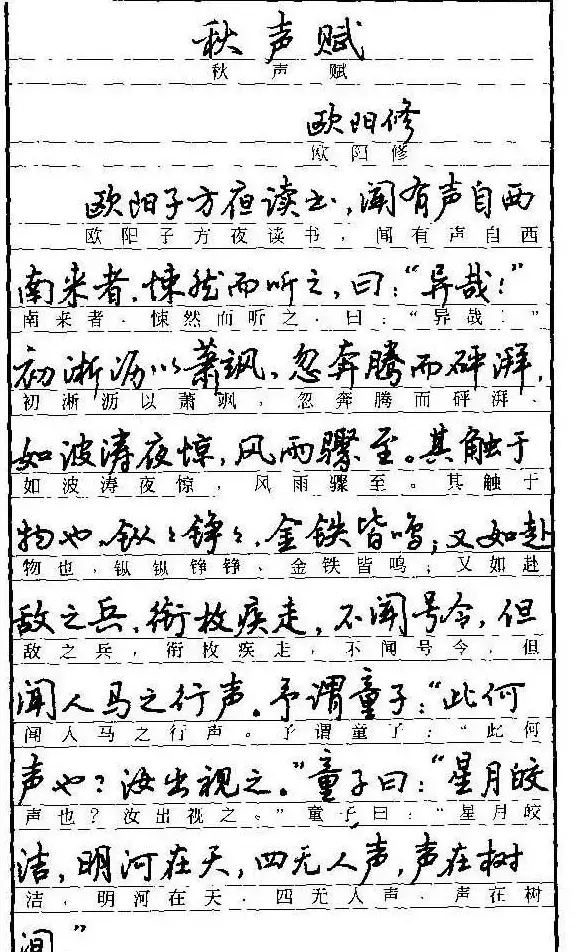 秋声赋
秋声赋
欧阳修
欧阳修
欧阳子方夜读书，闻有声自西
欧阳子方夜读书，闻有声自西
南来者，悚然而听之，曰：“异哉！”
南来者，悚然而听之，曰：“异哉！”
初淅沥以萧飒，忽奔腾而砰湃，
初淅沥以萧飒，忽奔腾而砰湃、
如波涛夜惊，风雨骤至。其触于
如波涛夜惊，风雨骤至。其触于
物也，鏦々铮々，金铁皆鸣；又如赴
物也，鏦鏦铮铮、金铁皆鸣；又如赴
敌之兵，衔枚疾走，不闻号令，但
敌之兵，衔枚疾走，不闻号令，但
闻人马之行声。予谓童子：“此何
闻人马之行声。予谓童子：“此何
声也？汝出视之。”童子曰：“星月皎
声也？汝出视之。”童子曰：“星月皎
洁，明河在天，四无人声，声在树
洁，明河在天，四无人声、声在树
间。”